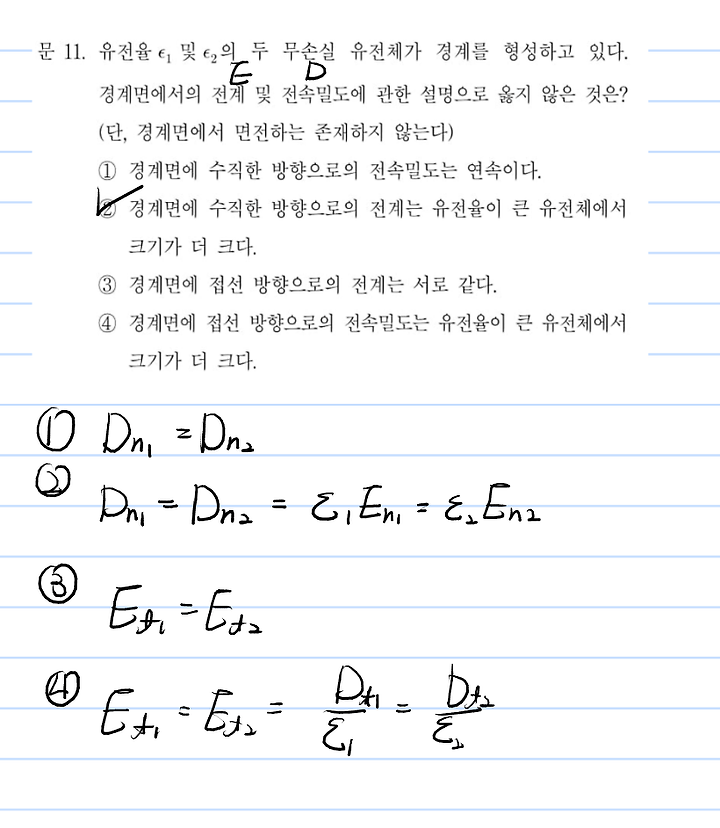 문 11. 유전율 ε₁ 및 ε₂의 두 무손실 유전체가 경계를 형성하고 있다.
E D
경계면에서의 전계 및 전속밀도에 관한 설명으로 옳지 않은 것은?
(단, 경계면에서 면전하는 존재하지 않는다)
① 경계면에 수직한 방향으로의 전속밀도는 연속이다.
② 경계면에 수직한 방향으로의 전계는 유전율이 큰 유전체에서
크기가 더 크다.
③ 경계면에 접선 방향으로의 전계는 서로 같다.
④ 경계면에 접선 방향으로의 전속밀도는 유전율이 큰 유전체에서
크기가 더 크다.
① Dn₁ = Dn₂
② Dn₁ = Dn₂ = ε₁En₁ = ε₂En2
③ Et₁ = Et₂
④ Et₁ = Et₂ = Dt₁/ε₁ = Dt₂/ε₂